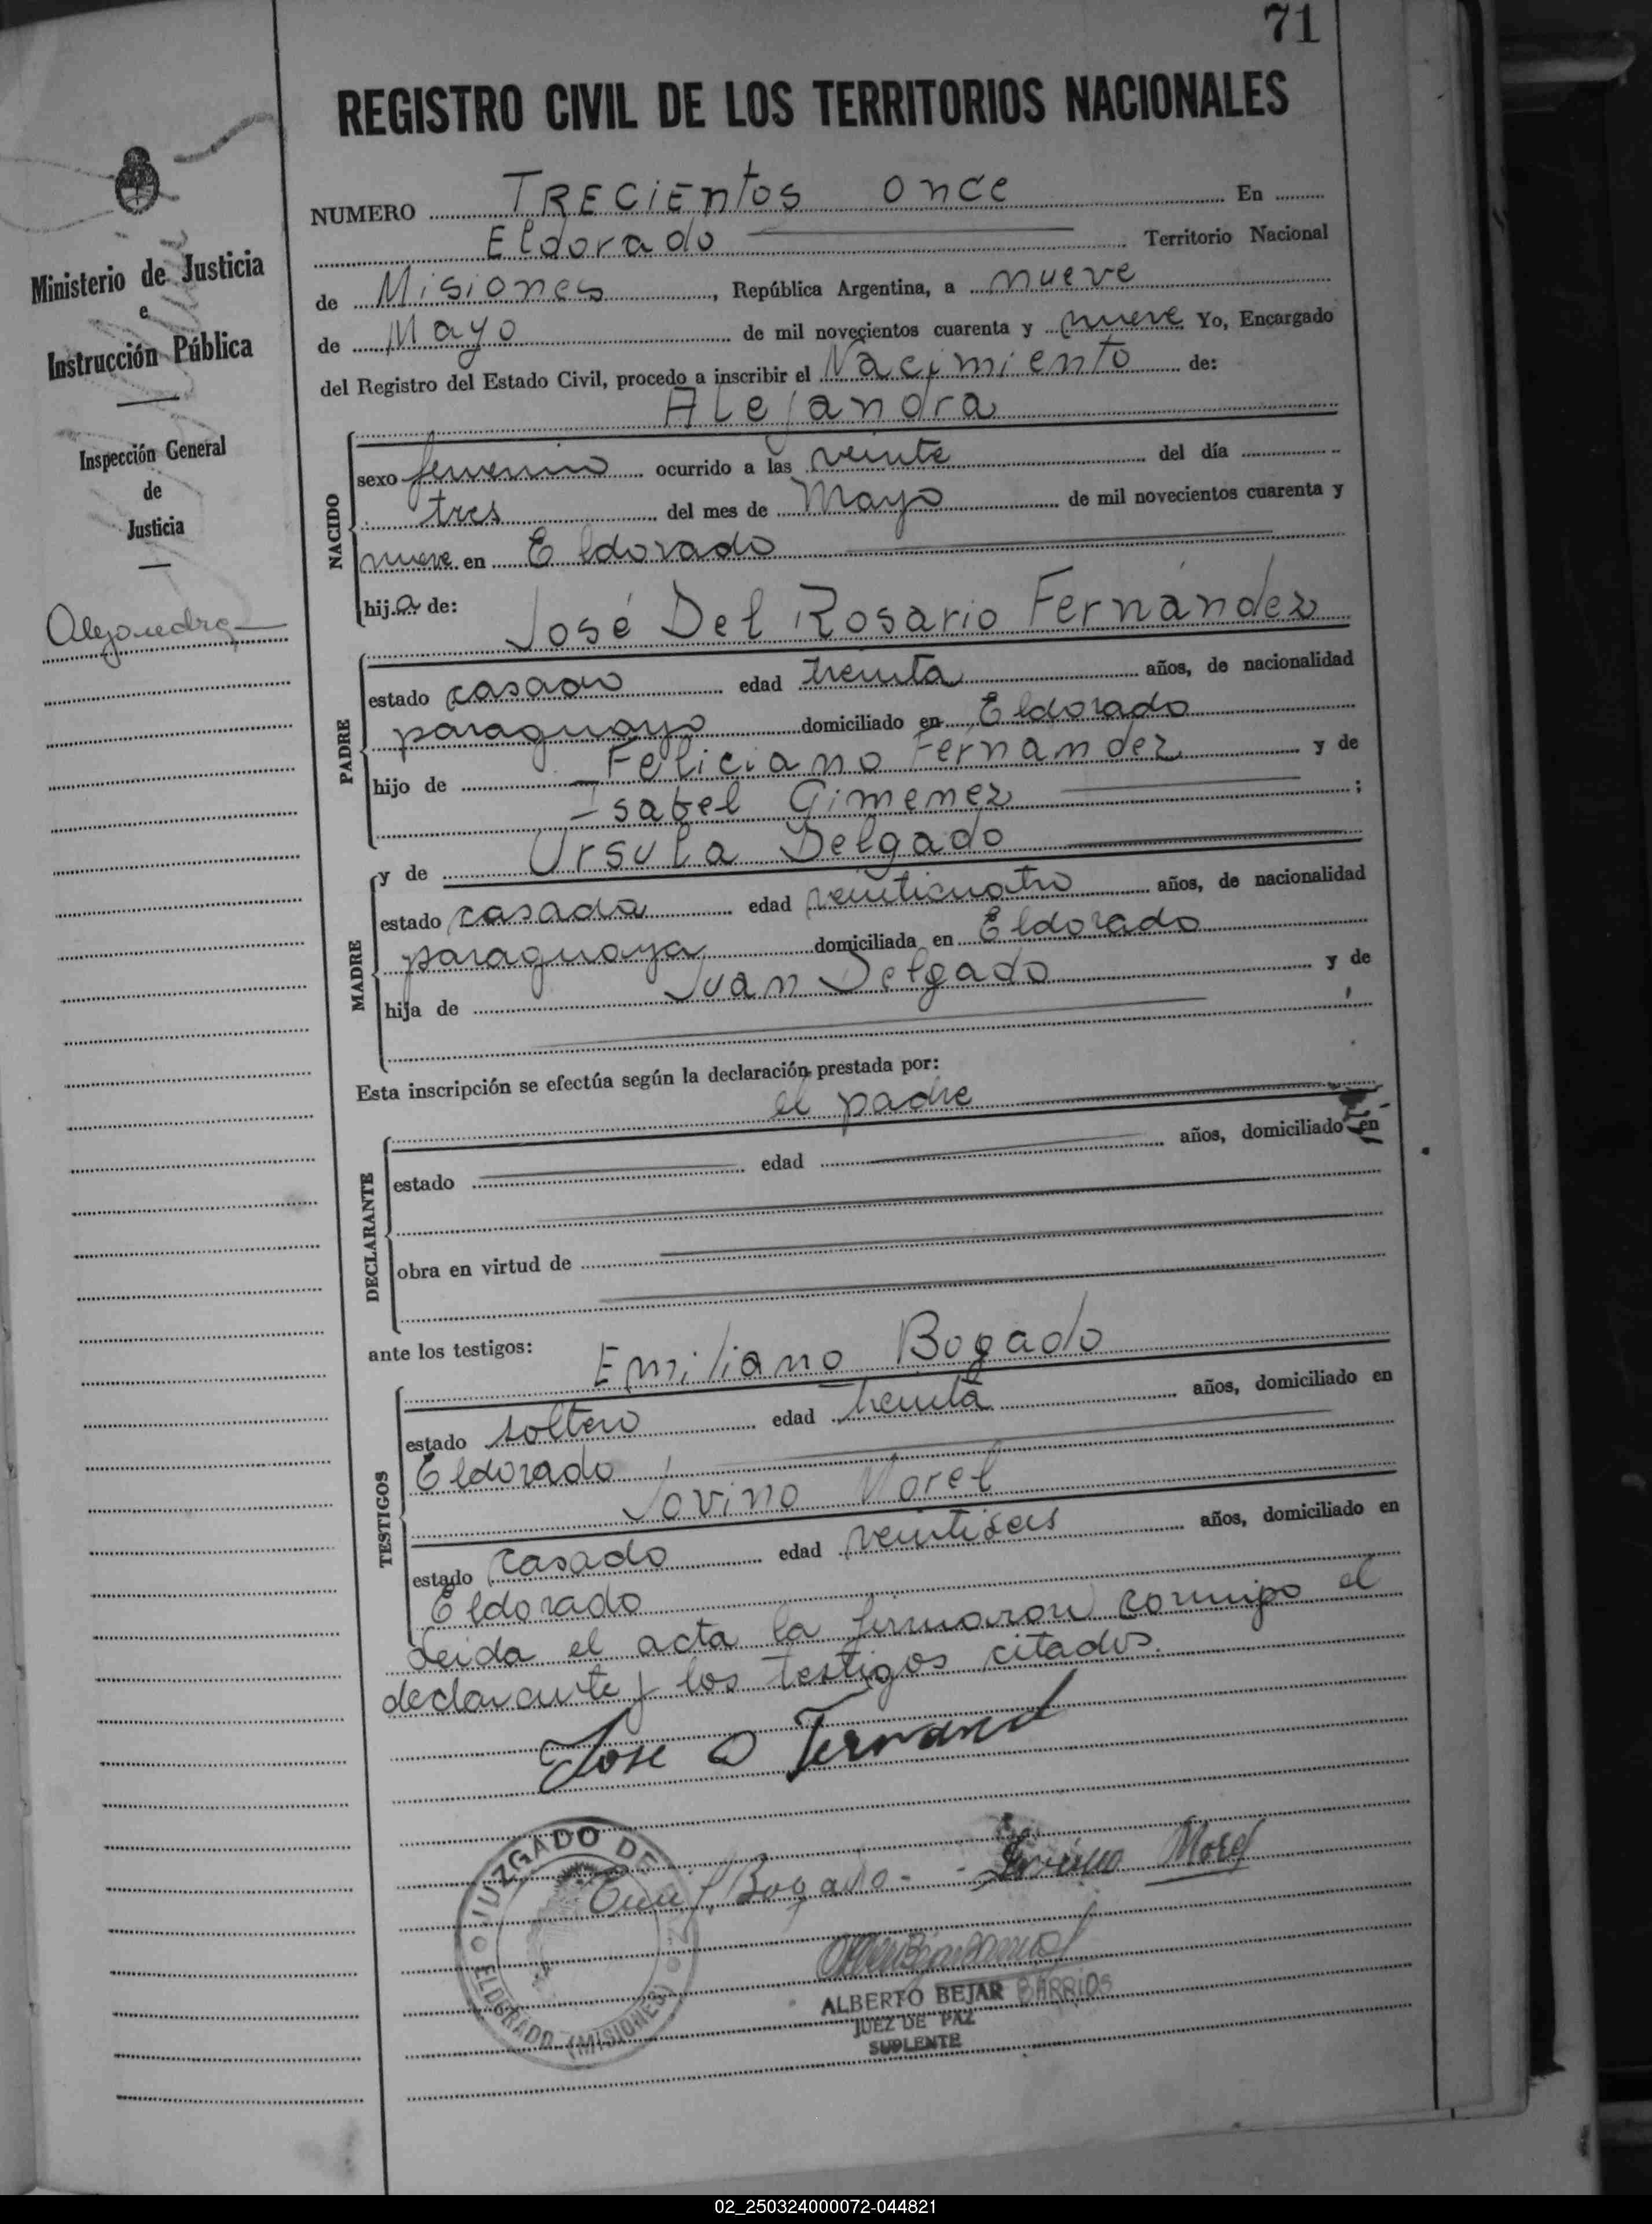 71
REGISTRO CIVIL DE LOS TERRITORIOS NACIONALES
Ministerio de Justicia
e
Instrucción Pública
Inspección General
de
Justicia
Alejandra
NUMERO TRECIENTOS ONCE En
Eldorado Territorio Nacional
de Misiones, República Argentina, a nueve
de Mayo de mil novecientos cuarenta y nueve Yo, Encargado
del Registro del Estado Civil, procedo a inscribir el Nacimiento de:
Alejandra
NACIDO
sexo femenino ocurrido a las veinte del día
tres del mes de Mayo de mil novecientos cuarenta y
nueve en Eldorado
hija de:
José Del Rosario Fernández
PADRE
estado casado edad treinta años, de nacionalidad
paraguayo domiciliado en Eldorado
hijo de Feliciano Fernandez y de
Isabel Gimenez ;
y de Ursula Delgado
MADRE
estado casada edad veinticuatro años, de nacionalidad
paraguaya domiciliada en Eldorado
hija de Juan Delgado y de
Esta inscripción se efectúa según la declaración prestada por:
el padre
DECLARANTE
estado edad años, domiciliado en
obra en virtud de
ante los testigos:
Emiliano Bogado
TESTIGOS
estado soltero edad treinta años, domiciliado en
Eldorado
Jovino Morel
estado casado edad veintiseis años, domiciliado en
Eldorado
Leida el acta la firmaron conmigo el
declarante y los testigos citados.
Jose D Fernand
JUZGADO DE PAZ
ELDORADO (MISIONES)
Emil Bogado - Jovino Morel
ALBERTO BEJAR BARRIOS
JUEZ DE PAZ
SUPLENTE
02_250324000072-044821